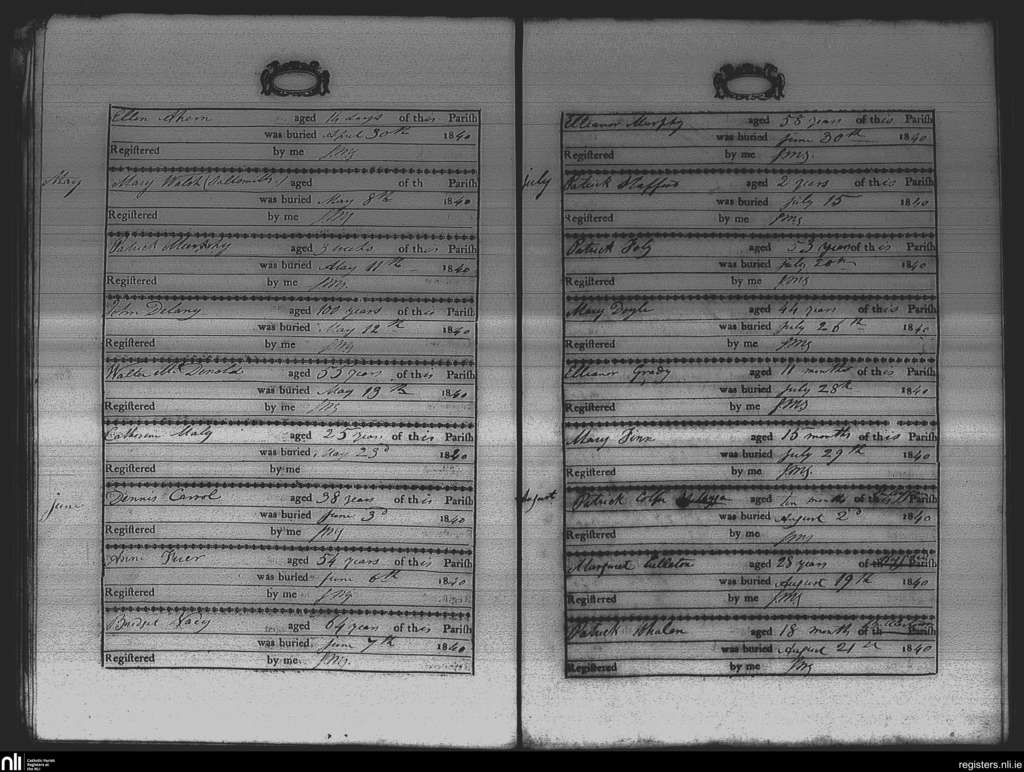 Ellen Ahern aged 14 days of this Parish
was buried April 30th 1840
Registered by me JMG
May
Mary Walsh (Saltmills) aged of th Parish
was buried May 8th 1840
Registered by me JMG
Patrick Murphy aged 3 weeks of this Parish
was buried May 11th 1840
Registered by me JMG
John Delany aged 100 years of this Parish
was buried May 12th 1840
Registered by me JMG
Walter McDonold aged 55 years of this Parish
was buried May 13th 1840
Registered by me JMG
Catherine Maly aged 25 years of this Parish
was buried May 23d 1840
Registered by me
June
Dennis Carrol aged 38 years of this Parish
was buried June 3d 1840
Registered by me JMG
Anne aged 54 years of this Parish
was buried June 6th 1840
Registered by me JMG
Bridget aged 64 years of this Parish
was buried June 7th 1840
Registered by me JMG
Elleanor Murphy aged 58 years of this Parish
was buried June 30th 1840
Registered by me JMG.
July
Patrick Stafford aged 2 years of this Parish
was buried July 15 1840
Registered by me JMG
Patrick Foly aged 53 years of this Parish
was buried July 20th 1840
Registered by me JMG
Mary Doyle aged 44 years of this Parish
was buried July 26th 1840
Registered by me JMG
Elleanor Grady aged 11 months of this Parish
was buried July 28th 1840
Registered by me JMG
Mary Finn aged 15 months of this Parish
was buried July 29th 1840
Registered by me JMG.
August
Patrick Colfer aged ten months of Parish
was buried August 2d 1840
Registered by me JMG
Margaret Culleton aged 28 years of
was buried August 19th 1840
Registered by me JMG
Patrick Whalen aged 18 months of th Parish
was buried August 21st 1840
Registered by me JMG
nli Catholic Parish Registers at the NLI
registers.nli.ie